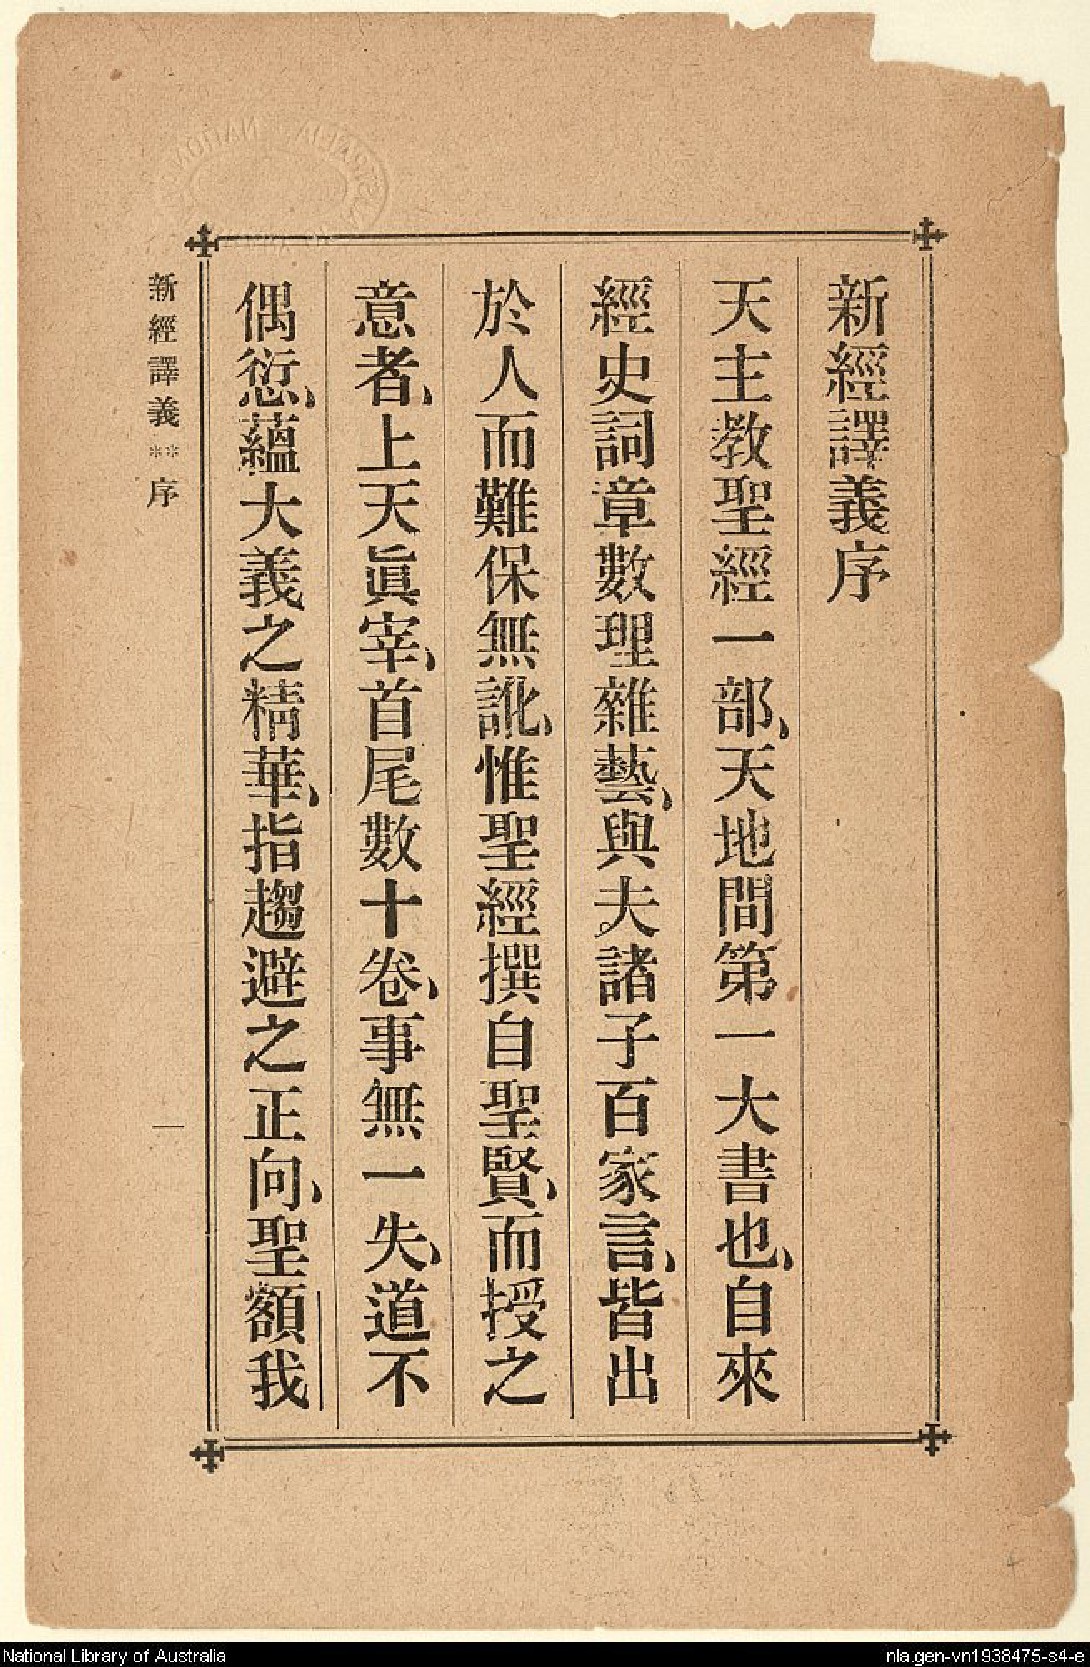 新經譯義序
天主教聖經一部、天地間第一大書也、自來
經史詞章數理雜藝、與夫諸子百家言、皆出
於人而難保無訛、惟聖經撰自聖賢、而授之
意者、上天眞宰、首尾數十卷、事無一失、道不
偶愆、蘊大義之精華、指趨避之正向、聖額我
新經譯義**序
一
National Library of Australia
nla.gen-vn1938475-s4-e